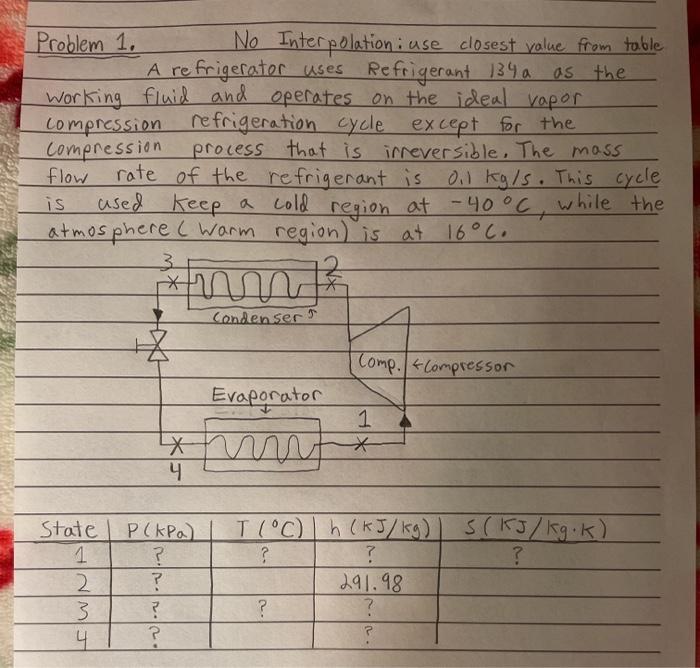 Problem 1. No Interpolation: use closest value from table
A refrigerator uses Refrigerant 134a as the
working fluid and operates on the ideal vapor
compression refrigeration cycle except for the
compression process that is irreversible. The mass
flow rate of the refrigerant is 0.1 kg/s. This cycle
is used keep a cold region at -40 °C, while the
atmosphere ( warm region) is at 16°C.
3 2
Condenser
Comp. ← Compressor
Evaporator
1
4
State P(kPa) T (°C) h (kJ/kg) S (KJ/kg.K)
1 ? ? ? ?
2 ? 291.98
3 ? ? ?
4 ? ?